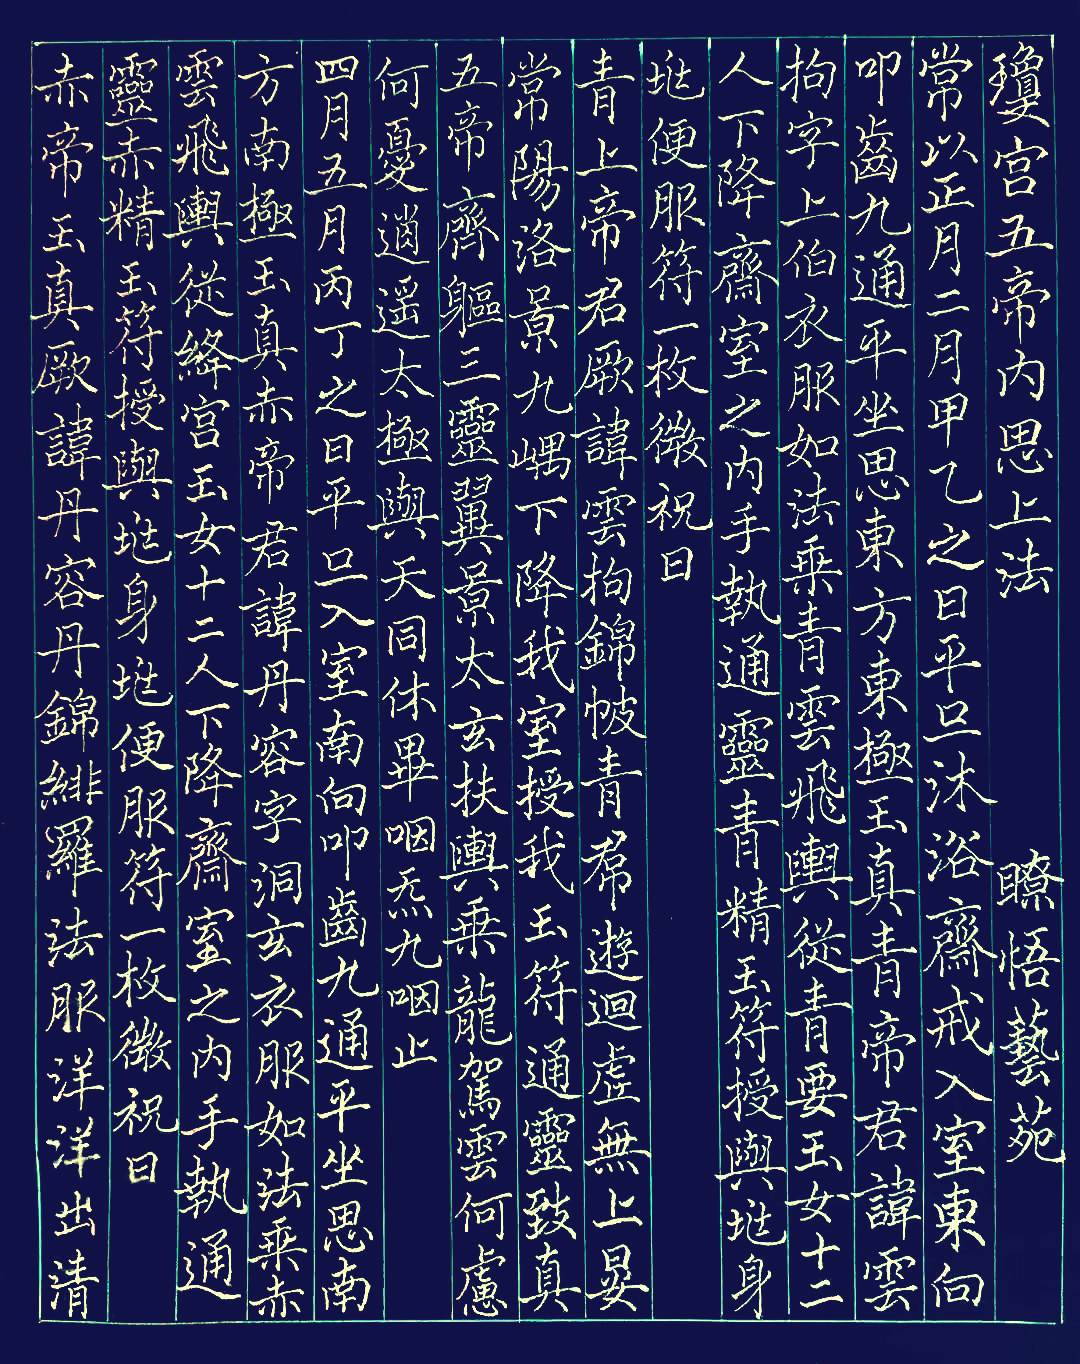 瓊宫五帝内思上法 瞭悟藝苑
常以正月二月甲乙之日平旦沐浴齋戒入室東向
叩齒九通平坐思東方東極玉真青帝君諱雲
拘字上伯衣服如法乘青雲飛輿從青要玉女十二
人下降齋室之内手執通靈青精玉符授與兆身
兆便服符一枚微祝曰
青上帝君厥諱雲拘錦帔青帬遊迴虚無上晏
常陽洛景九嵎下降我室授我玉符通靈致真
五帝齊軀三靈翼景太玄扶輿乘龍駕雲何慮
何憂逍遥太極與天同休畢咽炁九咽止
四月五月丙丁之日平旦入室南向叩齒九通平坐思南
方南極玉真赤帝君諱丹容字洞玄衣服如法乘赤
雲飛輿從絳宫玉女十二人下降齋室之内手執通
靈赤精玉符授與兆身兆便服符一枚微祝曰
赤帝玉真厥諱丹容丹錦緋羅法服洋洋出清